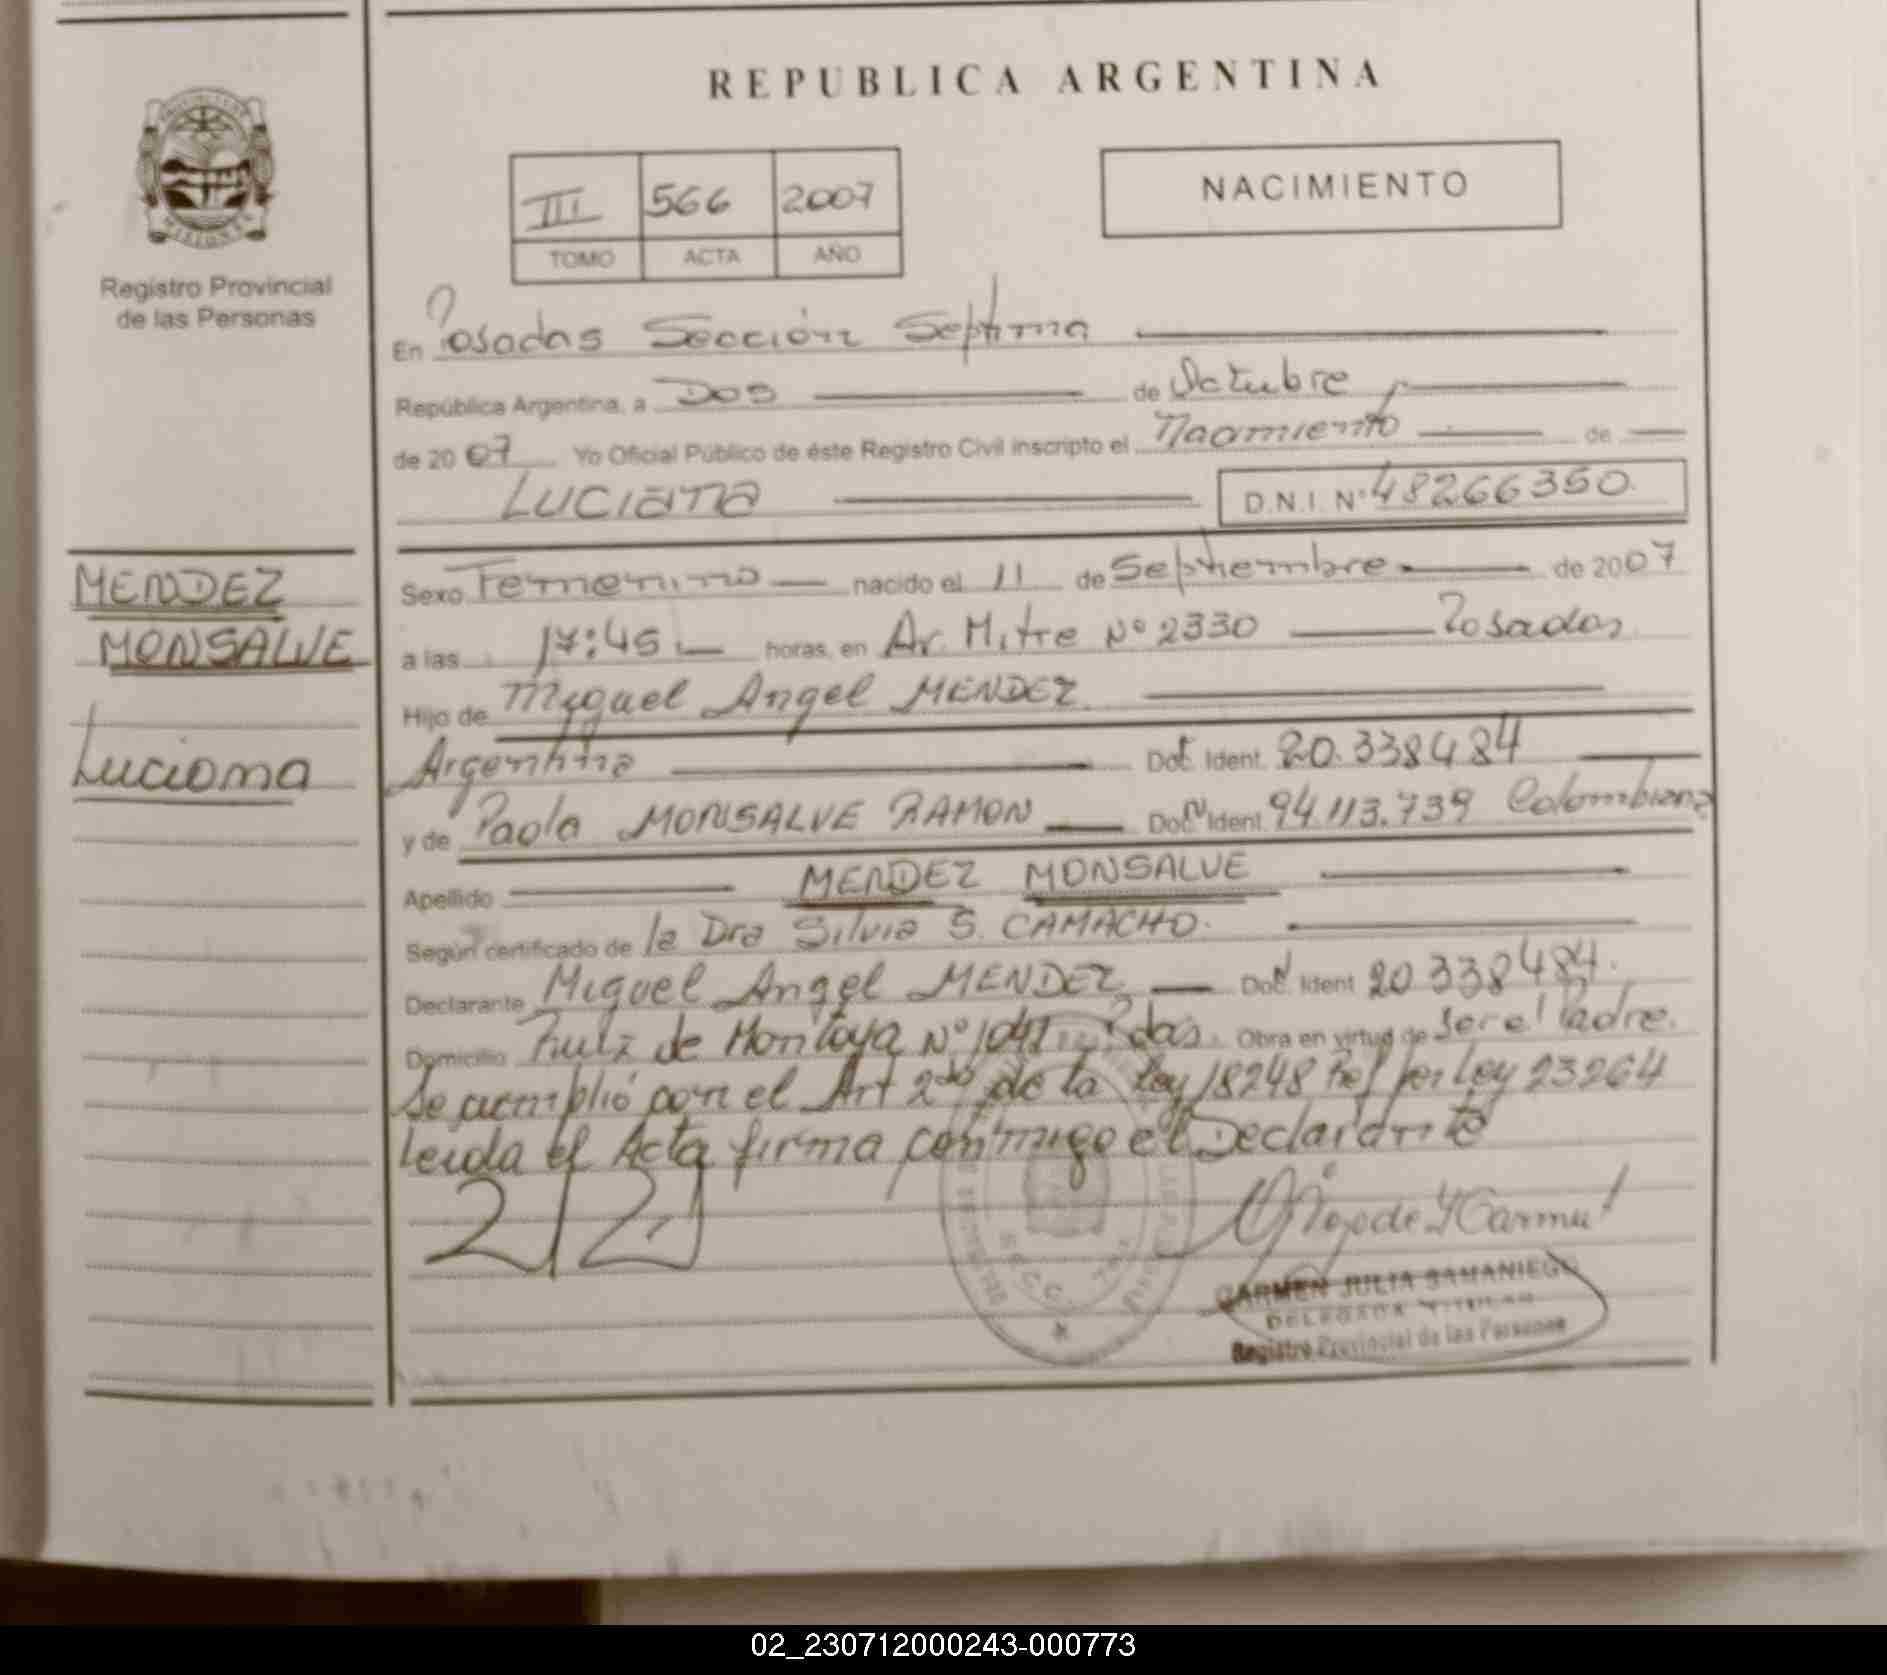 REPUBLICA ARGENTINA
III 566 2007
TOMO ACTA AÑO
NACIMIENTO
Registro Provincial
de las Personas
MENDEZ
MONSALVE
Luciana
En Posadas Sección Septima
República Argentina, a Dos de Octubre
de 2007 Yo Oficial Público de éste Registro Civil inscripto el Nacimiento de
Luciana D.N.I. Nº 48266350.
Sexo Femenino nacido el 11 de Septiembre de 2007
a las 17:45 horas, en Av. Mitre Nº 2330 Posadas
Hijo de Miguel Angel MENDEZ
Argentina Doc. Ident. 20.338484
y de Paola MONSALVE RAMON Doc. Ident. 94.113.739 Colombiana
Apellido MENDEZ MONSALVE
Según certificado de la Dra Silvia S. CAMACHO.
Declarante Miguel Angel MENDEZ Doc. Ident 20338484.
Domicilio Ruiz de Montoya Nº 1041 Pdas. Obra en virtud de ser el Padre.
Se acmplió con el Art 2do de la Ley 18248 Ref per Ley 23264
leida el Acta firma conmigo el Declarante
CARMEN JULIA SAMANIEGO
DELEGADA TITULAR
Registro Provincial de las Personas
02_230712000243-000773